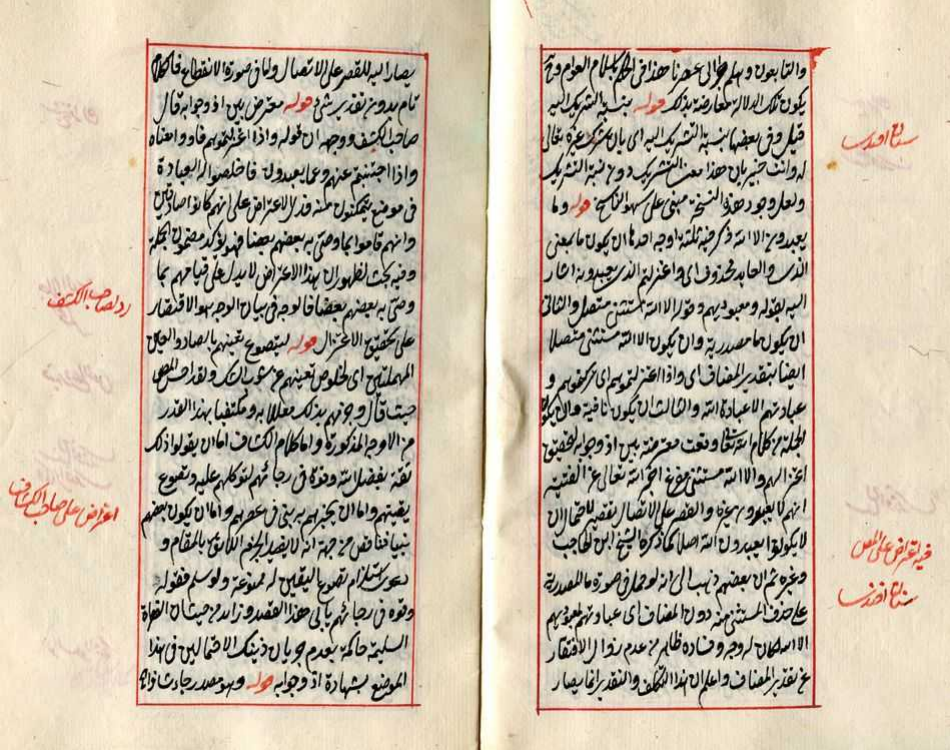 والتابعون وهلم جرا الى عصرنا هذا فى الحكم بكلام العوام وقد
يكون تلك الدلالة معارضة بذلك قوله بنسبة التشريك اليه
قيل وفى بعضها بنسبة التشريك اليه اى بان يشرك غيره تعالى
له وانت خبير بان هذا معنى التشريك دون نسبة التشريك
ولعل وجود هذه النسخة مبنى على سهو الناسخ قوله وما
يعبدون الا الله ذكر فيه ثلثة اوجه احدها ان يكون ما بمعنى
الذى والعايد محذوف اى واعتزلتم الذى يعبدونه اشار
اليه بقوله ومعبوديهم وقوله الا الله مستثنى متصل والثانى
ان يكون ما مصدرية وان يكون الا الله مستثنى متصلا
ايضا بتقدير المضاف اى واذا اعتزلتموهم اى تركتموهم و
عبادتهم الا عبادة الله والثالث ان يكون نافية والان يكون
الجملة من كلام الله تعالى وقعت معترضة بين اذ وجوابه لتحقيق
اعتزالهم والا الله مستثنى مفرغ اخبر الله تعالى عن الفتية
انهم لا يعبدون غيره والقصر على الاتصال يقتضى
لا يكونوا يعبدون الله اصلا كما ذكره الشيخ ابن الحاجب
وغيره ثم ان بعضهم ذهب الى انه لو حمل فى صورة ما المصدرية
على حذف المستثنى منه دون المضاف اى عبادتهم معبوديهم
الا الله لكان له وجه وفساده ظاهر من عدم زوال الافتقار
عن تقدير المضاف واعلم ان هذا التكلف والتقدير انما يصار
سنان افندى
فيه اعتراض على المص
سنان افندى
يصار اليه للقصر على الاتصال واما فى صورة الانقطاع فالكلام
تام بدون تقدير شئ قوله معترض بين اذ وجوابه قال
صاحب الكشف ووجهه ان قوله واذا اعتزلتموهم فاووا معناه
واذا اجتنبتم عنهم وعما يعبدون فاخلصوا له العبادة
فى موضع تتمكنون منه فدل الاعتراض على انهم كانوا صادقين
وانهم قاموا بما وصى به بعضهم بعضا فهو يؤكد مضمون الجملة
وفيه بحث لظهور ان هذا الاعتراض لا يدل على قيامهم بما
وصى به بعضهم بعضا فالوجه فى بيان الوجه هو الاقتصار
على تحقيق الاعتزال قوله لنصوع يقينهم بالصاد والعين
المهملتين اى لخلوص يقينهم عن شوب الشك ولقد احسن المص
حيث قال وجزمهم بذلك معللا به ومكتفيا بهذا القدر
من الاوجه المذكورة واما كلام الكشاف اما ان يقولوا ذلك
ثقة بفضل الله وقوة فى رجائهم لتوكلهم عليه ونصوع
يقينهم واما ان يخبرهم به نبى فى عصرهم واما ان يكون بعضهم
نبيا فناقص من جهة انه لا يفيد الجزم اللايق بالمقام و
دعوى استلزام نصوع اليقين له ممنوعة ولو سلم فقوله
وقوة فى رجائهم يابى هذا القصد وزائد من حيث ان الفطرة
السليمة حاكمة بعدم جريان ذينك الاحتمالين فى هذا
الموضع بشهادة اذ وجوابه قوله وهو مصدر جاء شاذا
رد لصاحب الكشف
اعتراض على صاحب الكشاف